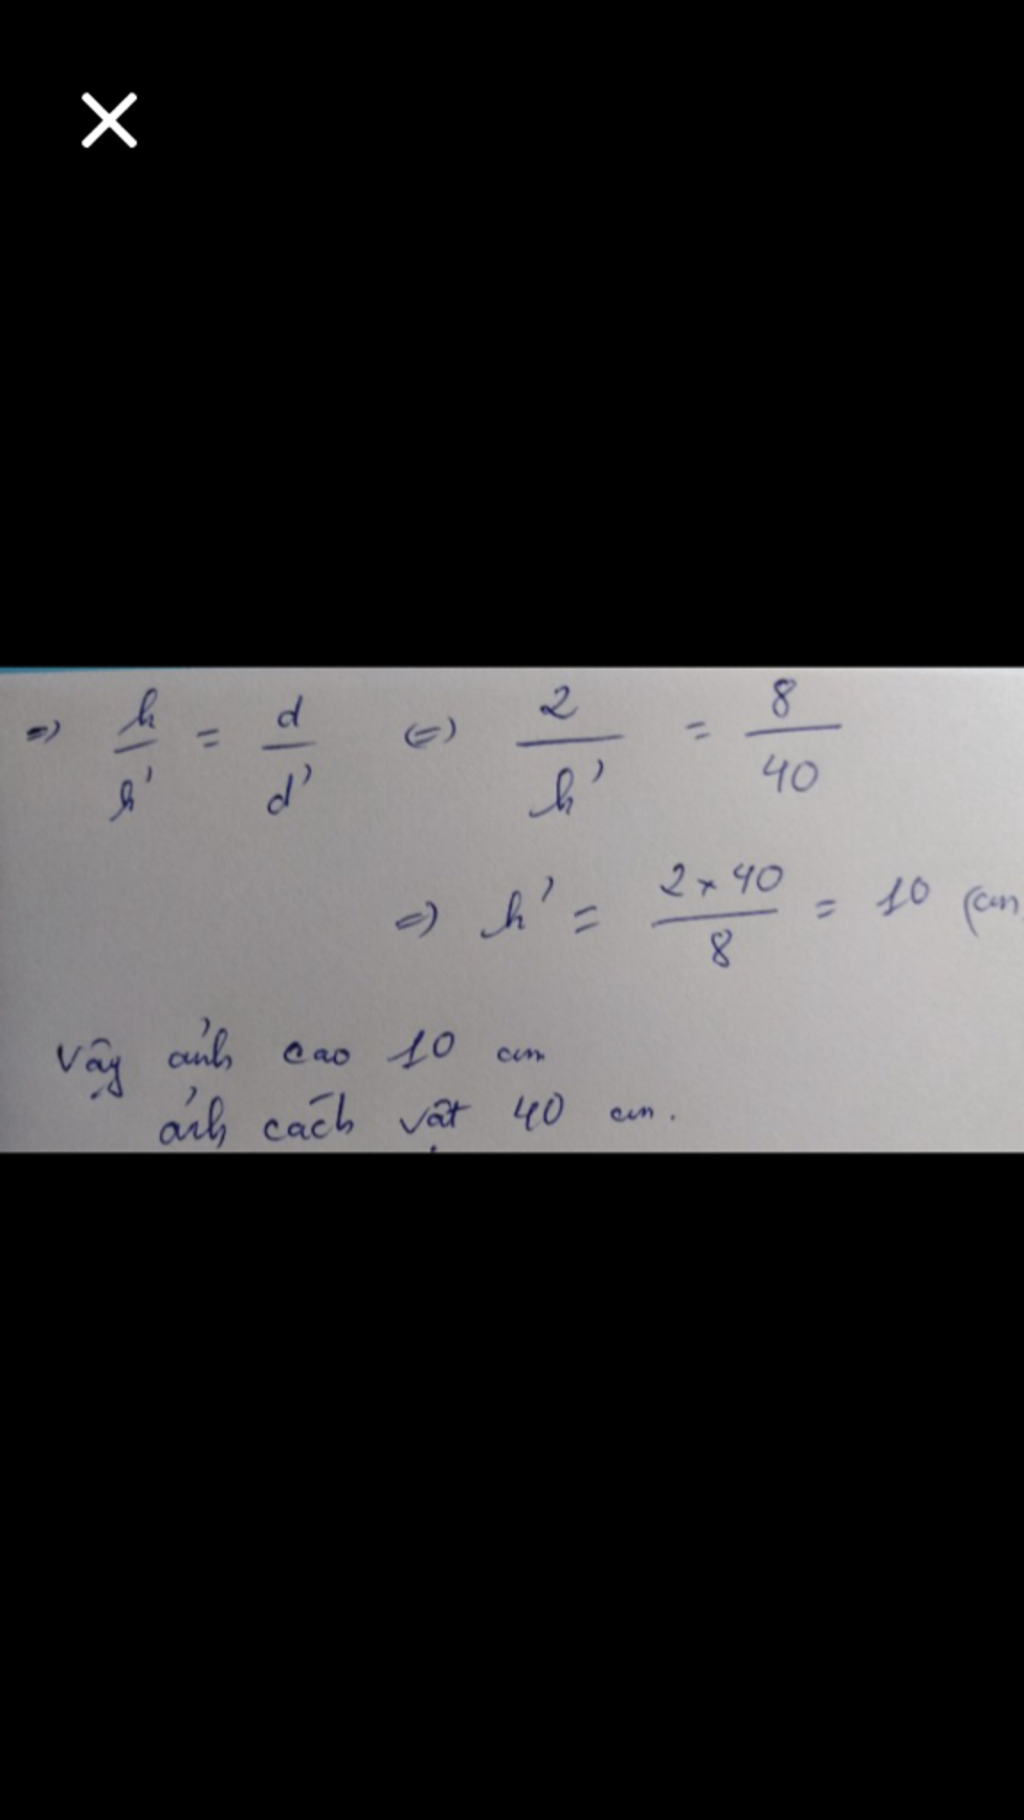 => h/h' = d/d' <=> 2/h' = 8/40
=> h' = 2 x 40/8 = 10 (cm
Vậy ảnh cao 10 cm
ảnh cách vật 40 cm.